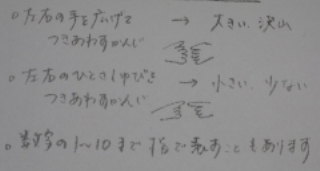 ○左右の手を広げて → 大きい、沢山
つきあわすかんじ
○左右のひとさしゆびを → 小さい、少ない
つきあわすかんじ
○数字の1〜10まで指で表すこともあります